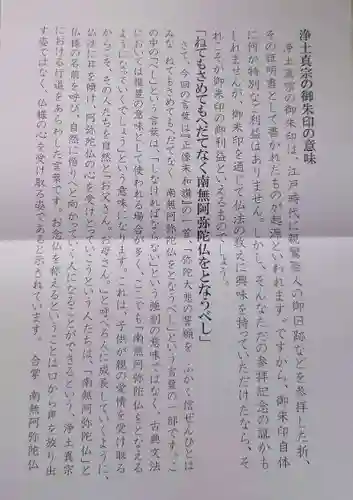 浄土真宗の御朱印の意味
浄土真宗の御朱印は、江戸時代に親鸞聖人の御旧跡などを参拝した折、
その証明書として書かれたものが起源といわれます。ですから、御朱印自体
に何か特別なご利益はありません。しかし、そんなただの参拝記念の証かも
しれませんが、御朱印を通して仏法の教えに興味を持っていただけたなら、そ
れこそが御朱印の御利益といえるものでしょう。
「ねてもさめてもへだてなく南無阿弥陀仏をとなうべし」
さて、今回の言葉は『正像末和讃』の一首、「弥陀大悲の誓願を ふかく信ぜんひとは
みな ねてもさめてもへだてなく 南無阿弥陀仏をとなうべし」という言葉の一部です。こ
の中の「べし」という言葉は、「しなければならない」という強制の意味ではなく、古典文法
においては推量の意味として使われる場合が多く、ここでも「南無阿弥陀仏をとなえる
ようになっていくでしょう」という意味になります。これは、子供が親の愛情を受け取る
からこそ、その人たちを自然と「お父さん。お母さん。」と呼べる人に成長していくように、
仏法に耳を傾け、阿弥陀仏の心を受けとっていこうという人たちは、「南無阿弥陀仏」と
仏様の名前を呼び、自然に悟りへと向かっていく人になることができるという、浄土真宗
における行道をあらわした言葉です。お念仏を称えるということは口から声を放り出
す姿ではなく、仏様の心を受け取る姿であると示されています。 合掌 南無阿弥陀仏